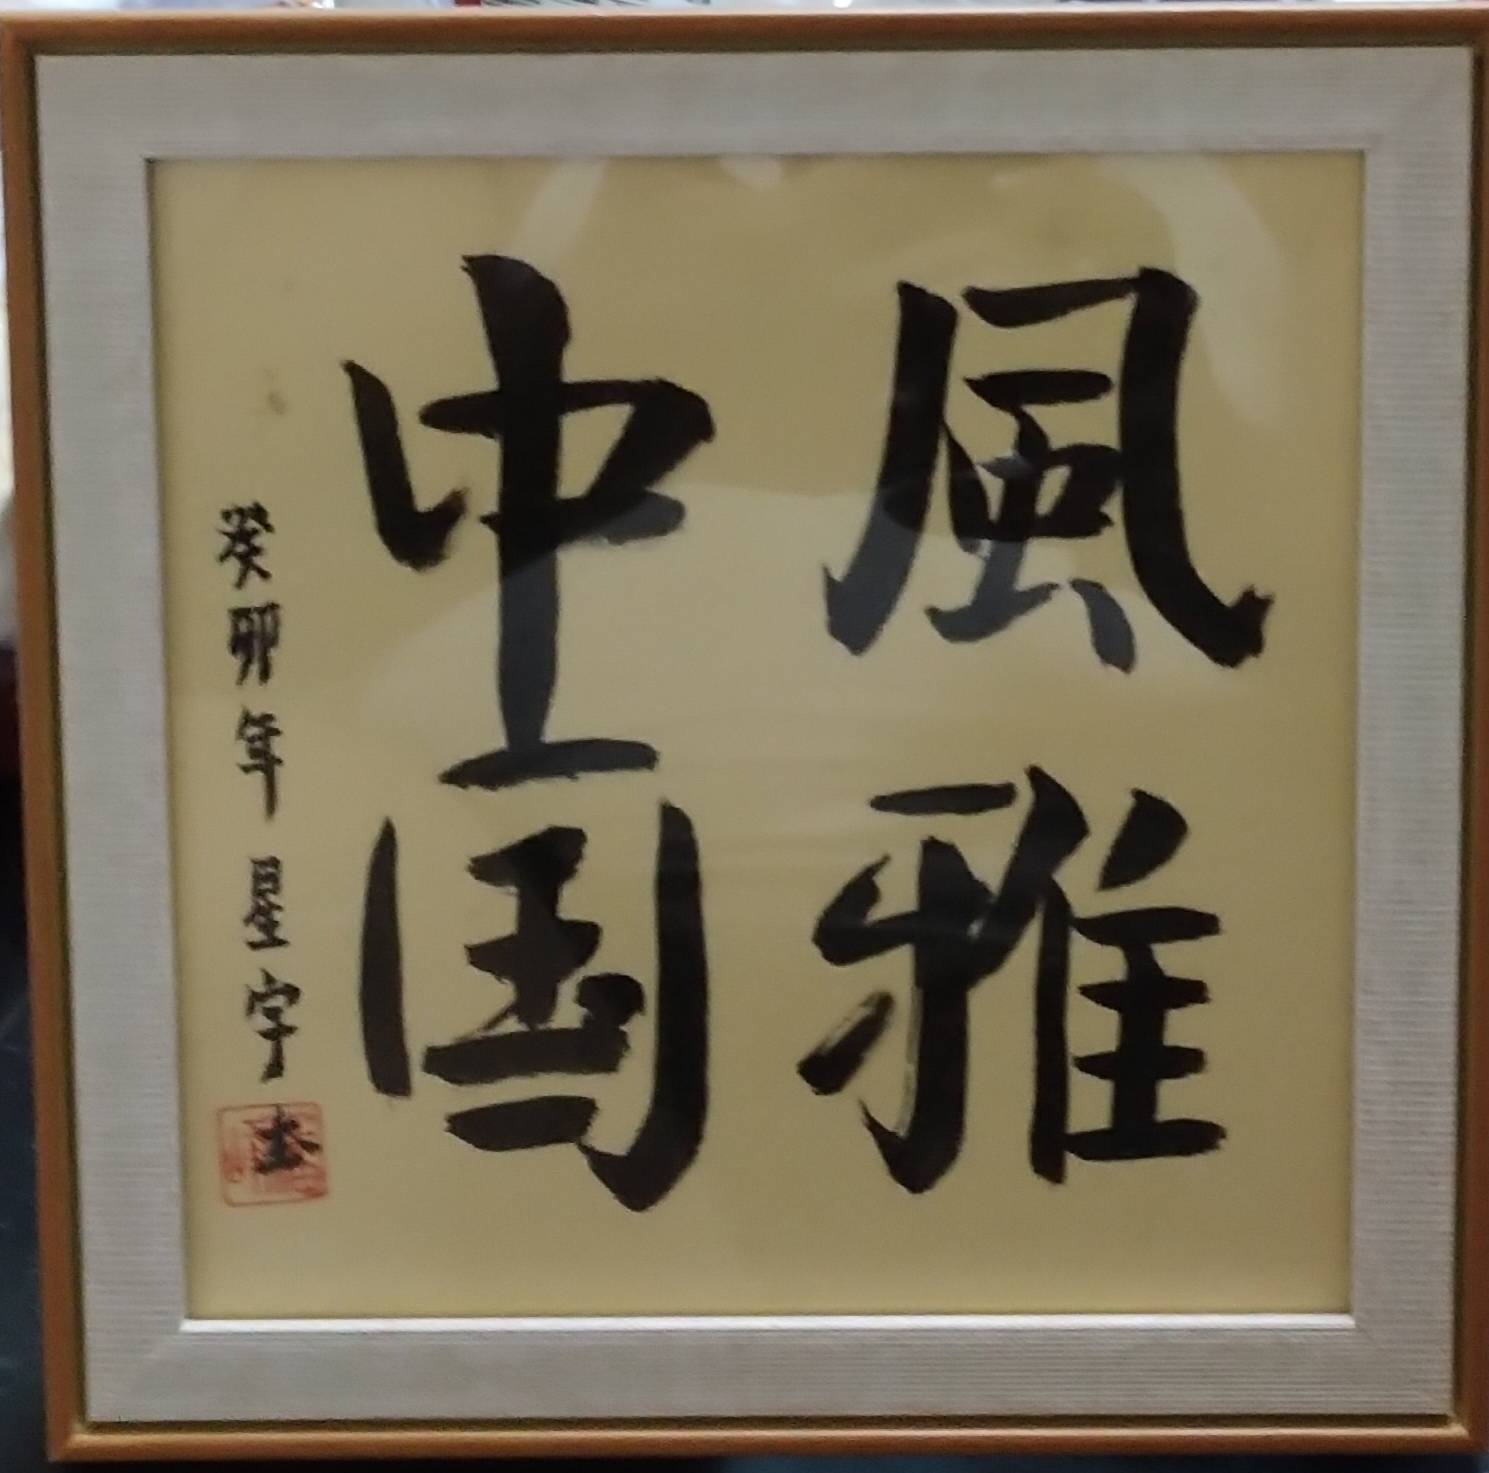 風雅
中国
癸卯年星宇